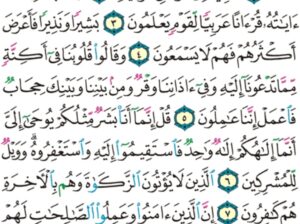 ءَايَٰتُهُۥ قُرْءَانًا عَرَبِيًّا لِّقَوْمٍ يَعْلَمُونَ ٣ بَشِيرًا وَنَذِيرًا فَأَعْرَضَ
أَكْثَرُهُمْ فَهُمْ لَا يَسْمَعُونَ ٤ وَقَالُوا۟ قُلُوبُنَا فِىٓ أَكِنَّةٍ
مِّمَّا تَدْعُونَآ إِلَيْهِ وَفِىٓ ءَاذَانِنَا وَقْرٌ وَمِنۢ بَيْنِنَا وَبَيْنِكَ حِجَابٌ
فَٱعْمَلْ إِنَّنَا عَٰمِلُونَ ٥ قُلْ إِنَّمَآ أَنَا۠ بَشَرٌ مِّثْلُكُمْ يُوحَىٰٓ إِلَىَّ
أَنَّمَآ إِلَٰهُكُمْ إِلَٰهٌ وَٰحِدٌ فَٱسْتَقِيمُوٓا۟ إِلَيْهِ وَٱسْتَغْفِرُوهُ وَوَيْلٌ
لِّلْمُشْرِكِينَ ٦ ٱلَّذِينَ لَا يُؤْتُونَ ٱلزَّكَوٰةَ وَهُم بِٱلْءَاخِرَةِ
هُمْ كَٰفِرُونَ ٧ إِنَّ ٱلَّذِينَ ءَامَنُوا۟ وَعَمِلُوا۟ ٱلصَّٰلِحَٰتِ لَهُمْ